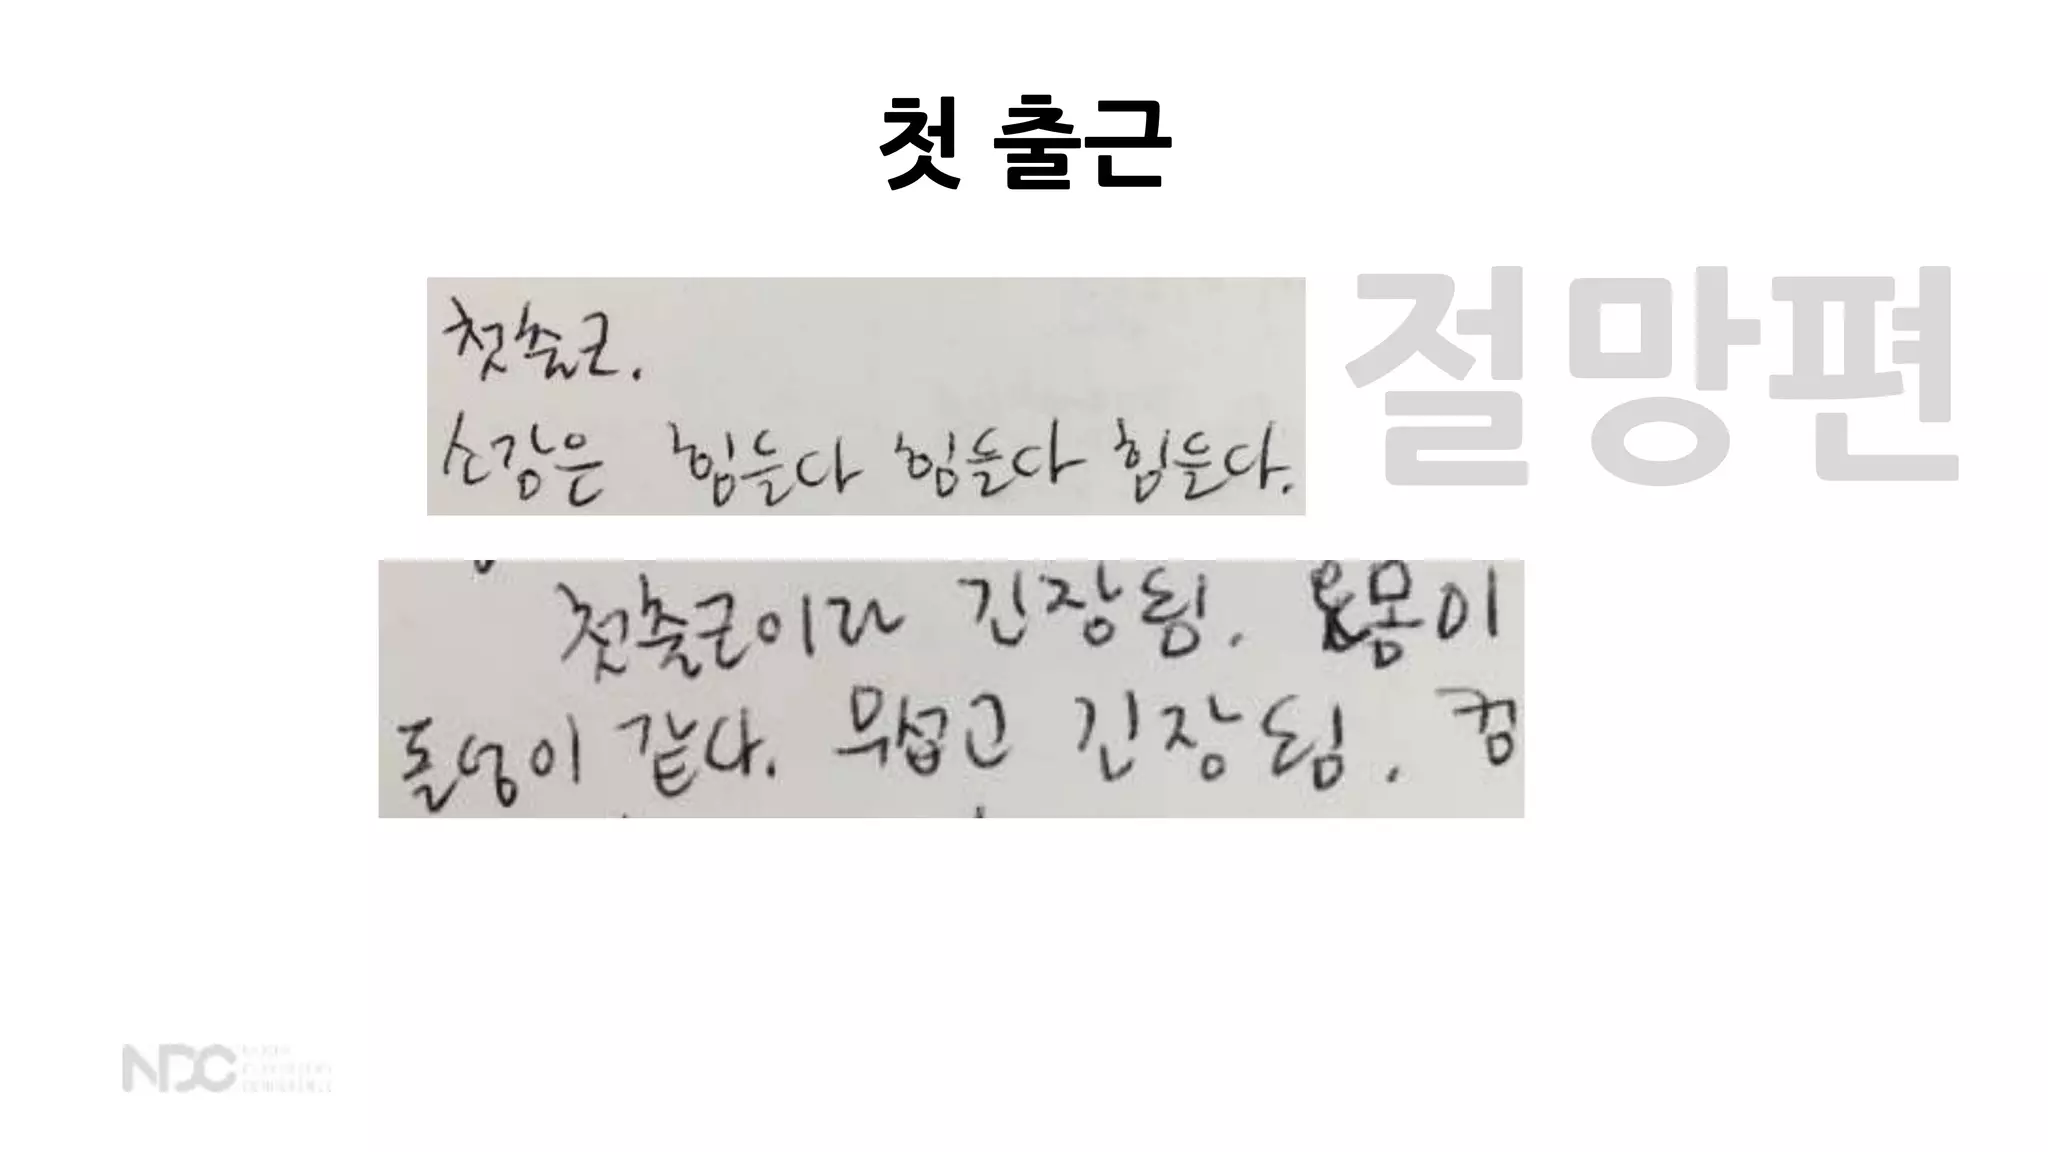 첫 출근
절망편
첫출근.
소감은 힘들다 힘들다 힘들다.
첫출근이라 긴장됨. 몸이
돌덩이 같다. 무섭고 긴장됨. 컴
NDC